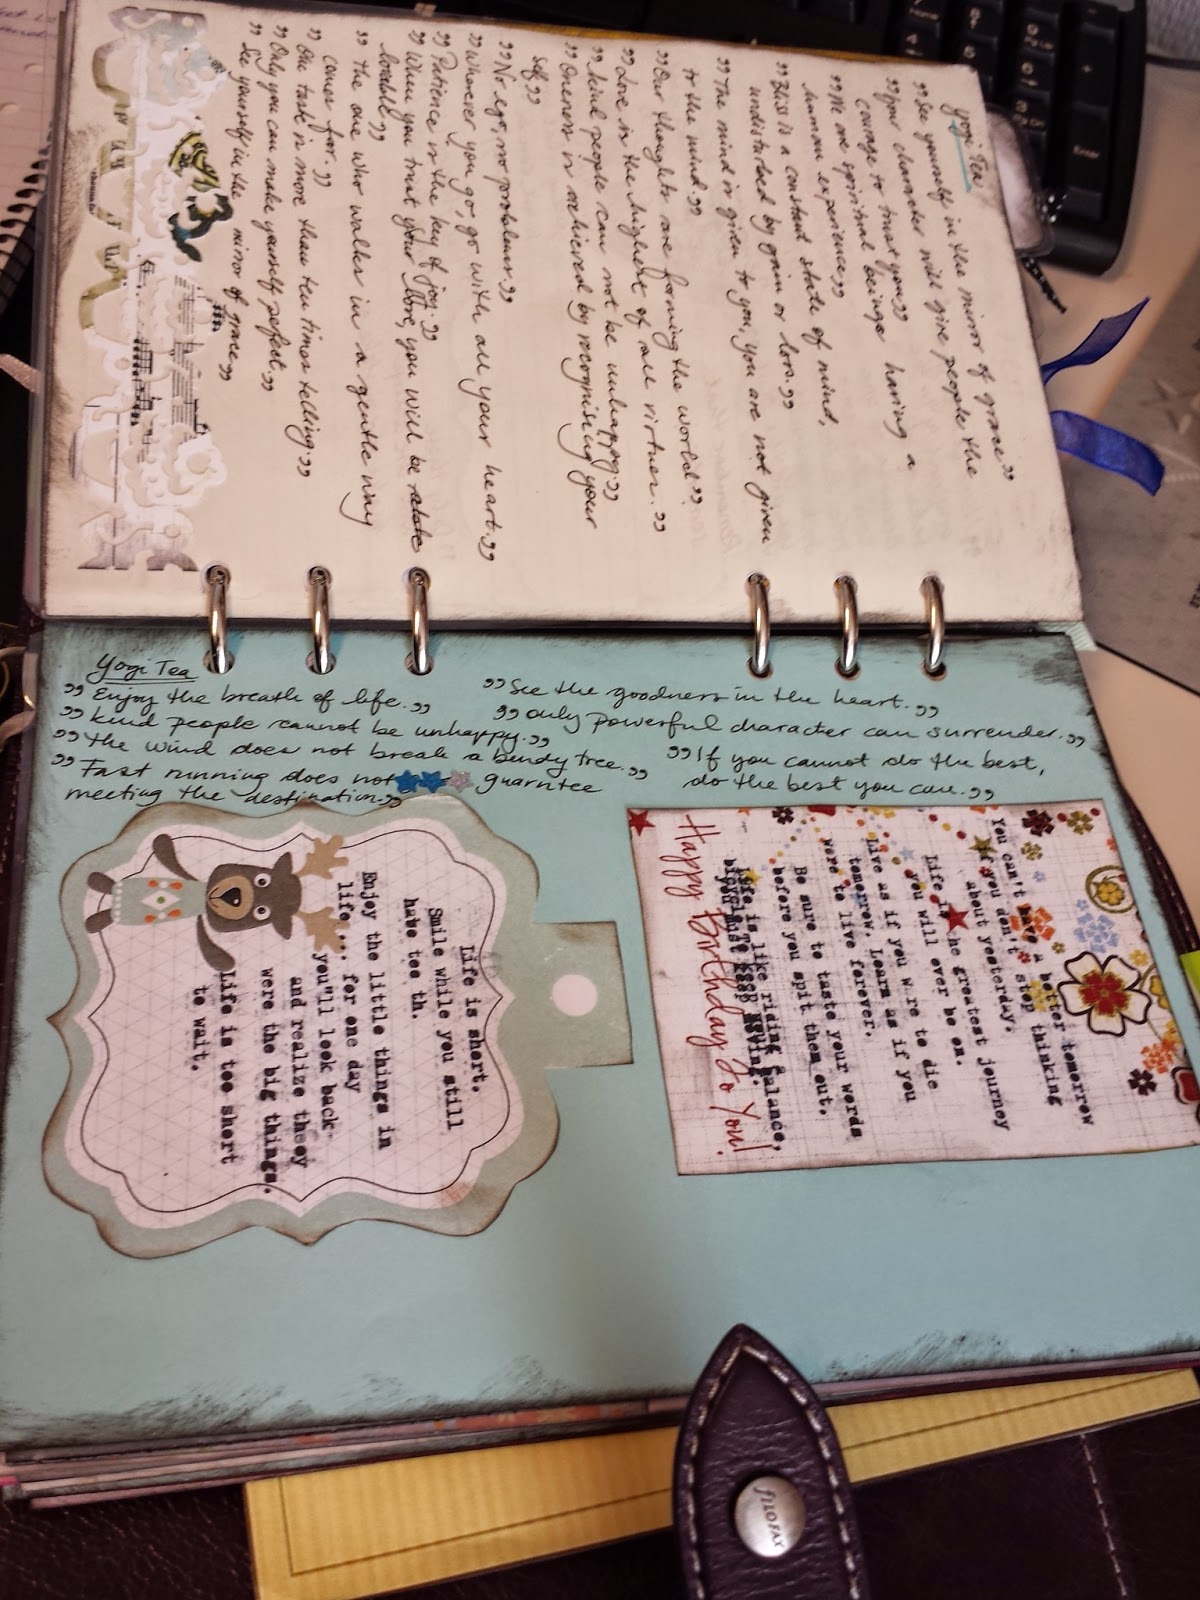 Yogi Tea
"See yourself in the mirror of grace"
"Your character will give people the
courage to trust you"
"We are spiritual beings having a
human experience"
"Bliss is a constant state of mind,
undisturbed by gain or loss."
"The mind is given to you, you are not given
to the mind."
"Our thoughts are forming the world"
"Love is the highest of all virtues."
"kind people can not be unhappy"
"Oneness is achieved by recognising your
self"
"No ego, no problems"
"Wherever you go, go with all your heart."
"Patience is the key of joy."
"When you trust your you will be
lovable"
"The one who walks in a gentle way
comes far."
"One task is more then ten times telling"
"Only you can make yourself perfect"
"See yourself in the mirror of grace"
Yogi Tea
"Enjoy the breath of life."
"kind people cannot be unhappy."
"the wind does not break a bendy tree."
"Fast running does not guarntee
meeting the destination."
"See the goodness in the heart."
"only powerful character can surrender."
"If you cannot do the best,
do the best you can."
You can't have a better tomorrow
if you don't stop thinking
about yesterday.
Life is he greatest journey
you will ever be on.
Live as if you w re to die
tomorrow. Learn as if you
were to live forever.
Be sure to taste your words
before you spit them out.
Life is like riding
bicycle. To keep balance,
you must keep moving.
Happy Birthday To You!
Life is short.
Smile while you still
have tee th.
Enjoy the little things in
life... for one day
you'll look back
and realize they
were the big things.
Life is too short
to wait.
Enter
filofax